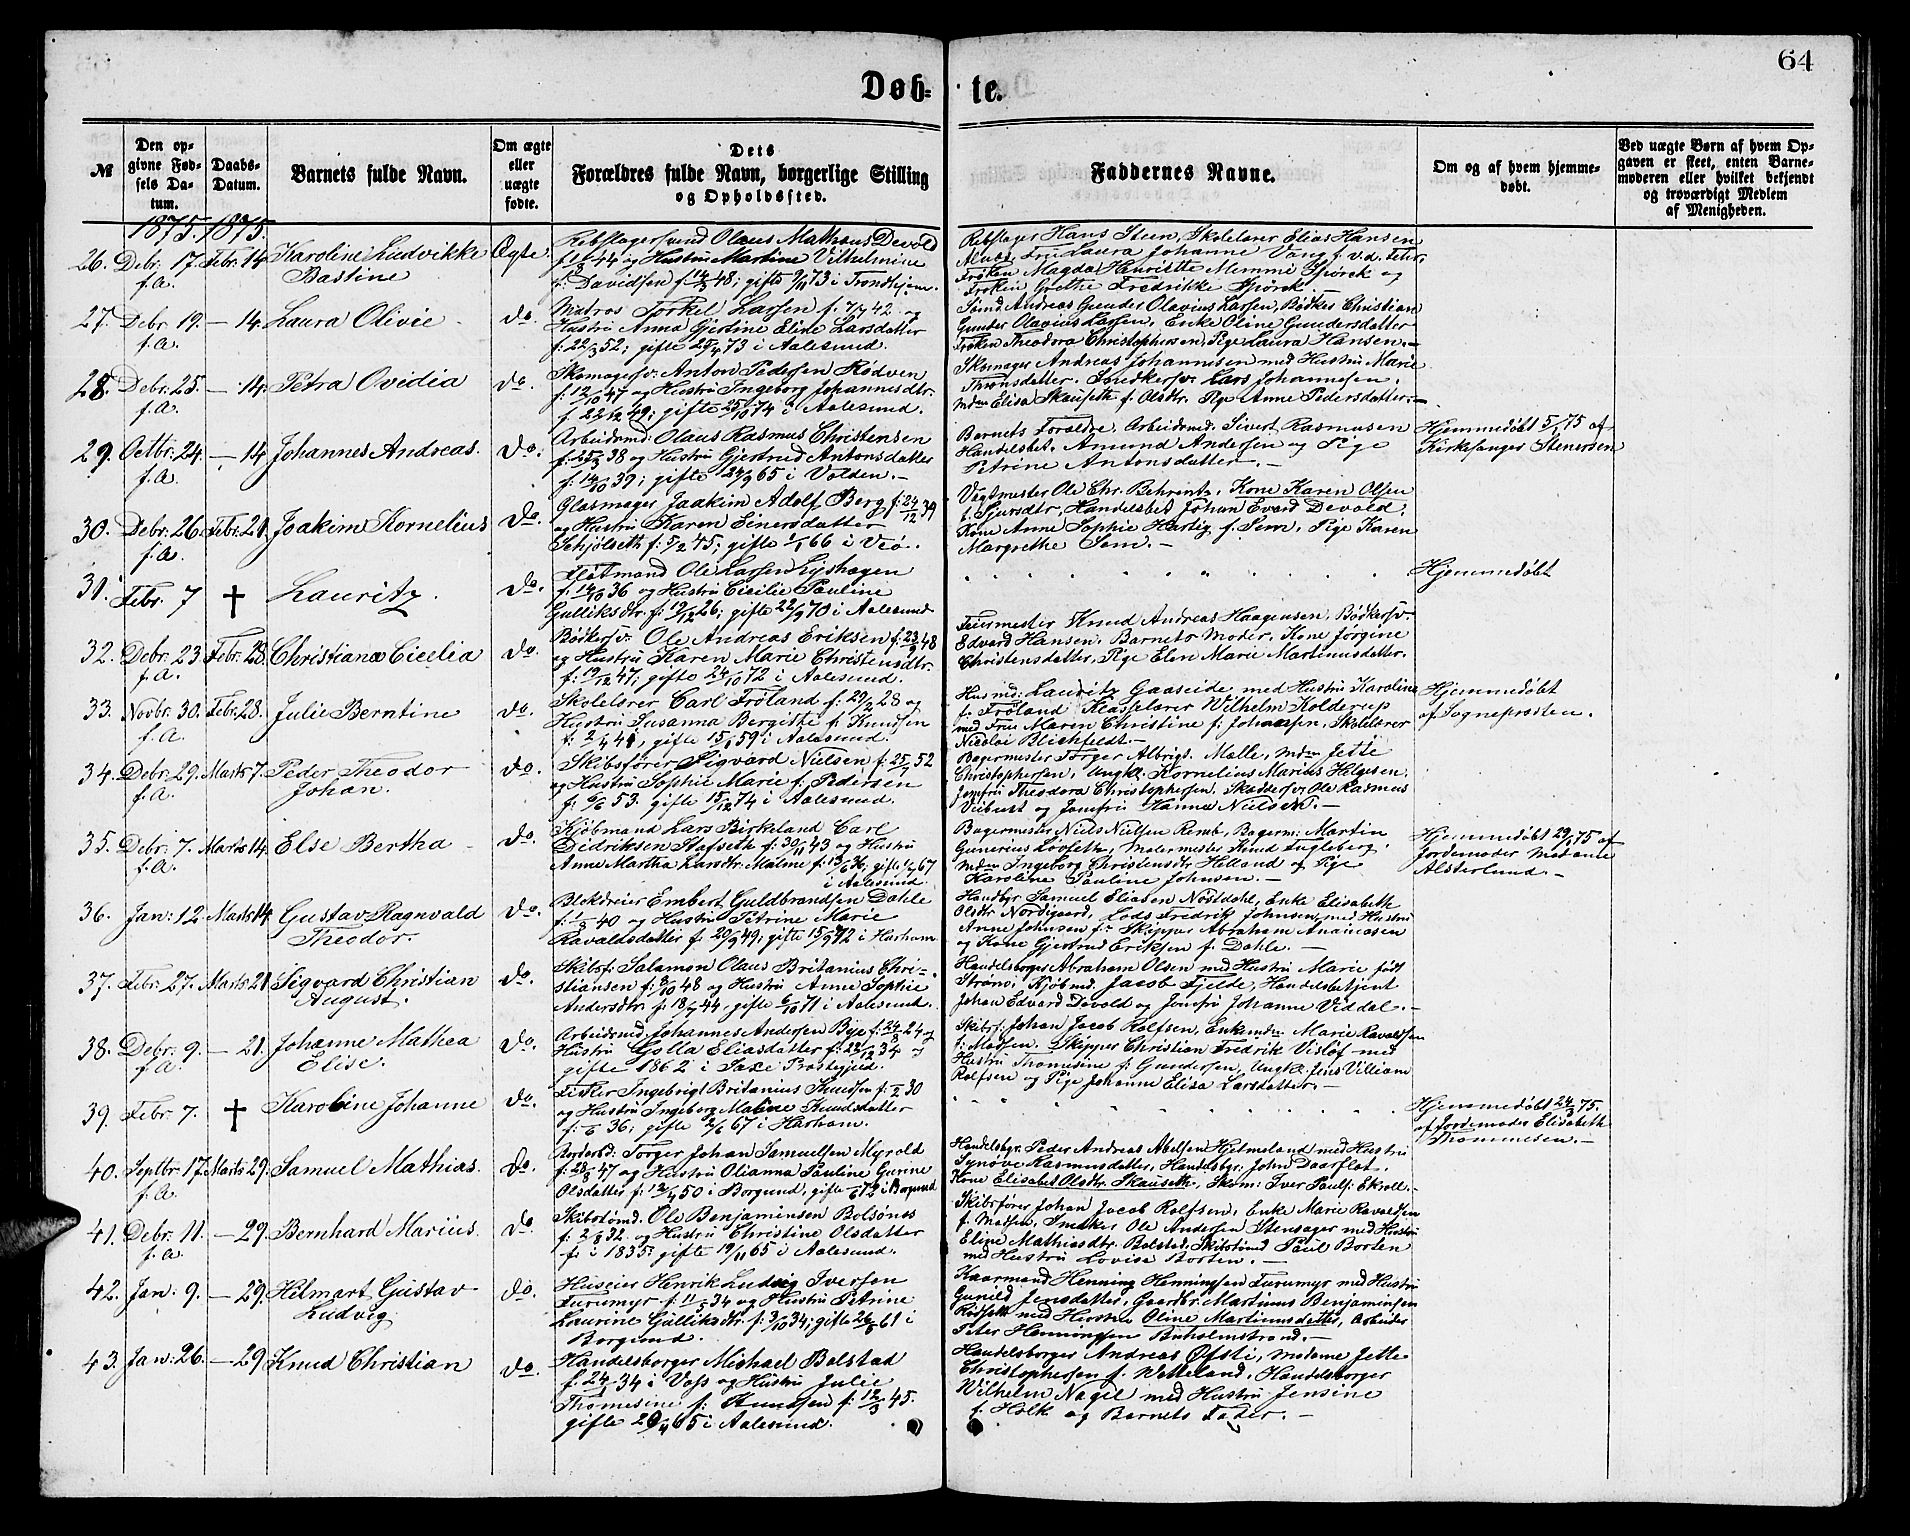 64
Døb-te.
№
Den opgivne Fødsels Datum.
Daabs-Datum.
Barnets fulde Navn.
Om ægte eller uægte fødte.
Dets Forældres fulde Navn, borgerlige Stilling og Opholdssted.
Faddernes Navne.
Om og af hvem hjemmedøbt.
Ved uægte Børn af hvem Opgaven er skeet, enten Barnemoderen eller hvilket bekjendt og troværdigt Medlem af Menigheden.
1875. 1875.
26. Debr. 17. f.A. Febr. 14 Karoline Ludvikke Bastine Ægte.
Rebslagersvend Olaus Mathæus Devold
og Hustru Martine Vilhelmine
f. Davidsen f. 14/3 48; gifte 9/11 73 i Trondhjem.
Rebslager Hans Steen, Skolelærer Elias Hansen
Frue Laura Johanne Vang f. v.d. Feter,
Frøken Magda Henriette Memmi Spørck og
Frøken Grethe Fredrikke Spørck.
27. Debr. 19. f.A. — 14. Laura Olivie do.
Matros Torkel Larsen f. 7/7 42 og
Hustru Anna Gjertine Eline Larsdatter
f. 22/3 52; gifte 25/4 73 i Aalesund.
Sømd. Andreas Gunder Olavius Larsen, Bødker Christian
Gunder Olavius Larsen, Enke Oline Gundersdatter
Frøken Theodora Christophersen, Pige Laura Hansen.
28. Debr. 25. f.A. — 14. Petra Ovidia do.
Skomagersv. Anton Pedersen Rødven
f. 12/10 47 og Hustru Ingeborg Johannisdtr.
f. 23/12 49; gifte 25/10 74 i Aalesund.
Skomager Andreas Johannesen med Hustru Marie
Thronsdatter. Snedkersv. Lars Johannesen.
Mdm Elisa Skauseth f. Olsdtr. Pige Anne Pedersdatter.
29. Octbr. 24. f.A. — 14 Johannes Andreas. do.
Arbeidsmd. Olaus Rasmus Christensen
f. 25/3 38 og Hustru Gjertrud Antonsdatter
f. 14/10 39; gifte 24/9 65 i Volden.
Barnets Forældre, Arbeidsmd. Sivert Rasmusen
Handelsbet. Amund Andersen og Pige
Petrine Antonsdatter.
Hjemmedøbt 5/1 75 af
Kirkesanger Stenersen
30. Debr. 26. f.A. Febr. 21. Joakim Kornelius do.
Glasmager Joakim Adolf Berg f. 24/12 39
og Hustru Karen Einersdatter
Schjølseth f. 5/2 45; gifte 1/1 66 i Veø.
Vegtmester Ole Chr. Behrentz, Kone Karen Olsen
f. Sjursdtr, Handelsbet Johan Evard Devold.
Kone Anne Sophie Hartig f. Sem, Pige Karen
Margrethe Sem.
31. Febr. 7 † Lauritz. do.
Fløtmand Ole Larsen Lyshagen
f. 14/10 36 og Hustru Cicilie Pauline
Gulliksdtr. f. 19/12 26; gifte 22/9 70 i Aalesund
Hjemmedøbt
32. Debr. 23. f.A. Febr. 28. Christiana Cicelia do.
Bødkersv. Ole Andreas Eriksen f. 23/9 48
og Hustru Karen Marie Christensdtr.
f. 9/12 47; gifte 24/10 72 i Aalesund.
Feiermester Knud Andreas Haagensen, Bødkersv.
Edvard Hansen. Barnets Moder, Kone Jørgine
Christensdatter, Pige Elen Marie Martinusdatter.
33. Novbr. 30. f.A. Febr. 28. Julie Berntine do.
Skolelærer Carl Frøland f. 29/2 28 og
Hustru Susanna Bergitte f. Knudsen
f. 2/4 41, gifte 15/1 59 i Aalesund.
Husmd. Lauritz Gaaseide med Hustru Karoline
f. Frøland Klasselærer Wilhelm Kolderup
med Frue Maren Christine f. Johansen, Skolelærer
Nicolai Blichfeldt.
Hjemmedøbt
af Sogneprosten.
34. Debr. 29. f.A. Marts 7. Peder Theodor Johan. do.
Skibsfører Sigvard Nielsen f. 25/7 52
og Hustru Sophie Marie f. Pedersen
f. 6/6 53. gifte 15/12 74 i Aalesund.
Bagermester Torger Albrigt. Malle, Mdm Jette
Christophersen, Ungk. Kornelius Marius Helgesen.
Jomfru Theodora Christophersen. Skræddersv Ole Rasmus
Viibust og Jomfru Hanna Nielsen.
35. Debr. 7. f.A. Marts 14. Else Bertha do.
Kjøbmand Lars Birkeland Carl
Didriksen Hofseth f. 30/11 43 og Hustru
Anne Martha Larsdtr. Malme f. 13/6 36, gifte 1/7 67
i Aalesund.
Bagermester Niels Nielsen Remb, Bagerm. Martin
Gunerius Løvseth, Malermester Knud Fugleberg.
Mdm Ingeborg Christensdtr Helland og Pige
Karoline Pauline Johnsen.
Hjemmedøbt 29/1 75 af
Jordemoder Madame
Alsterlund.
36. Jan: 12. Marts 14. Gustav Ragnvald Theodor. do.
Blokdreier Embert Guldbrandsen Dahle
f. 1/3 40 og Hustru Petrine Marie
Ravaldsdatter f. 20/9 49; gifte 15/9 72 i Harham
Handbgr. Samuel Eliasen Nøstdahl, Enke Elisabeth
Olsdtr Nordigaard, Lods Fredrik Johnsen med Hustru
Anne Johnsen f. Skipper Abraham Ananiasen
og Kone Gjertrud Eriksen f. Dahle.
37. Febr. 27. Marts 21 Sigvard Christian August. do.
Skibsf. Salamon Olaus Britanius Christiansen
f. 8/10 48 og Hustru Anne Sophie
Andersdtr. f. 18/7 44, gifte 6/10 71 i Aalesund.
Handelsborger Abraham Olsen med Hustru Marie født
Strøm, Kjøbmd. Jacob Fjelde, Handelsbetjent
Johan Edvard Devold og Jomfru Johanne Viddal.
38. Debr. 9. f.A. — 21. Johanne Mathea Elise. do.
Arbeidsmd. Johannes Andersen Bye f. 24/8 24 og
Hustru Golla Eliasdatter f. 22/12 34
gifte 1862 i Saxe Præstegjeld.
Skibsf. Johan Jacob Rolfsen, Enkemdm Marie Ravaldsen
f. Madsen. Skipper Christian Fredrik Visløf med
Hustru Thomasine f. Gundersen, Ungk. Jens Villiam
Rolfsen og Pige Johanne Elisa Larsdatter.
39. Febr. 7. † Karoline Johanne do.
Fisker Ingebrigt Britanius Knudsen f. 7/2 30
og Hustru Ingeborg Maline Knudsdatter
36; gifte 2/6 67 i Harham.
Hjemmedøbt 24/3 75.
af Jordemoder Elisabeth
Thommesen.
40. Septbr. 17 f.A. Marts 29. Samuel Mathias. do.
Torger Johan Samuelsen Myrold
f. 28/8 47 og Hustru Olianna Pauline Gurine
Olsdatter f. 12/7 50 i Borgund, gifte 72 i Borgund
Handelsbgr. Peder Andreas Abelsen Hjelmeland med Hustru
Synøve Rasmusdatter, Handelsbgr. John Daarflot.
Kone Elisabet Olsdtr. Skauseth, Skom. Iver Pauls. Ekroll.
41. Debr. 11. f.a. — 29. Bernhard Marius. do.
Skibstømd. Ole Benjaminsen Bolsønes
f. 2/8 32. og Hustru Christine Olsdatter
f. i 1835. gifte 19/11 65 i Aalesund.
Skibsfører Johan Jacob Rolfsen, Enke Marie Ravaldsen
f. Madsen, Smaker Ole Andersen Stensager med Hustru
Eline Mathiasdtr. Bolstad. Skibstømd Paul Borten
med Hustru Lovise Borten.
42. Jan: 9. — 29. Helmart Gustav Ludvig do.
Huseier Henrik Ludvig Iversen
Furumyr f. 11/3 34 og Hustru Petrine
Laurine Gulliksdtr. f. 3/10 34; gifte 26/6 61 i
Borgund.
Kaarmand Henning Henningsen Furumyr med Hustru
Gunild Jensdatter, Gaardbr. Martinus Benjaminsen
Rødseth med Hustru Oline Martinusdatter, Arbeider
Peter Henningsen Buholmstrand.
43. Jan: 26. — 29. Knud Christian do.
Handelsborger Michael Bolstad
f. 24/1 34 i Voss og Hustru Julie
Thomesine f. Knudsen f. 12/3 45.
gifte 20/4 65 i Aalesund.
Handelsborger Andreas Øfsti, Madame Jette
Christophersen f. Wetteland, Handelsborger
Wilhelm Nagel med Hustru Jensine
f. Holk og Barnets Fader.